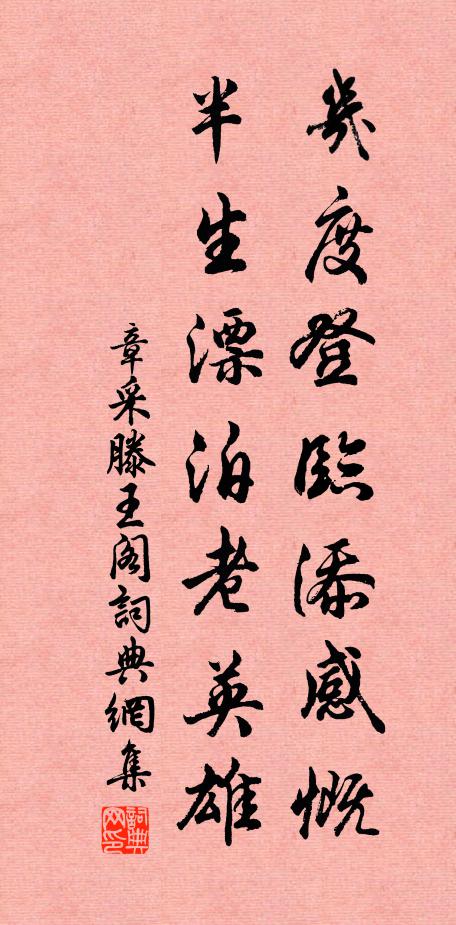 幾度登臨添感慨
半生漂泊老英雄
章采滕王阁詞典網集
詞典网印